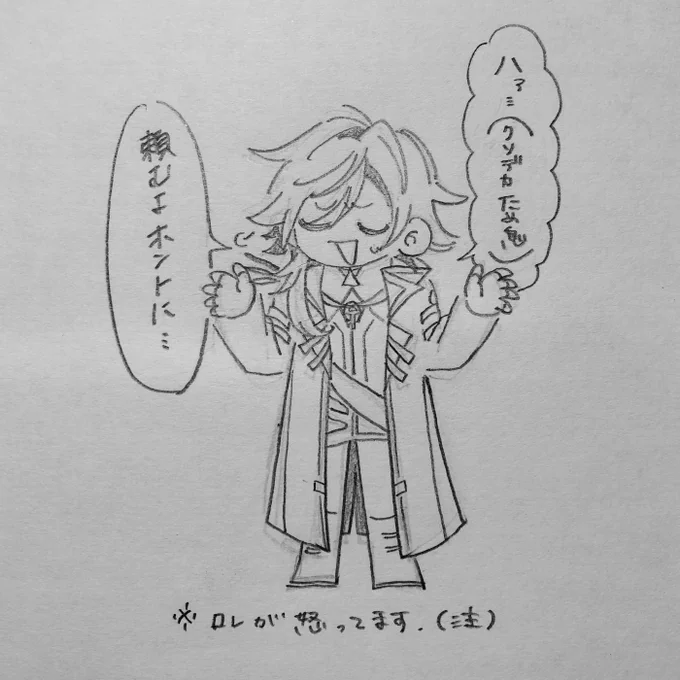 ハァ…(クソデカため息)
頼むよホントに…
※ロレが怒ってます.(注)